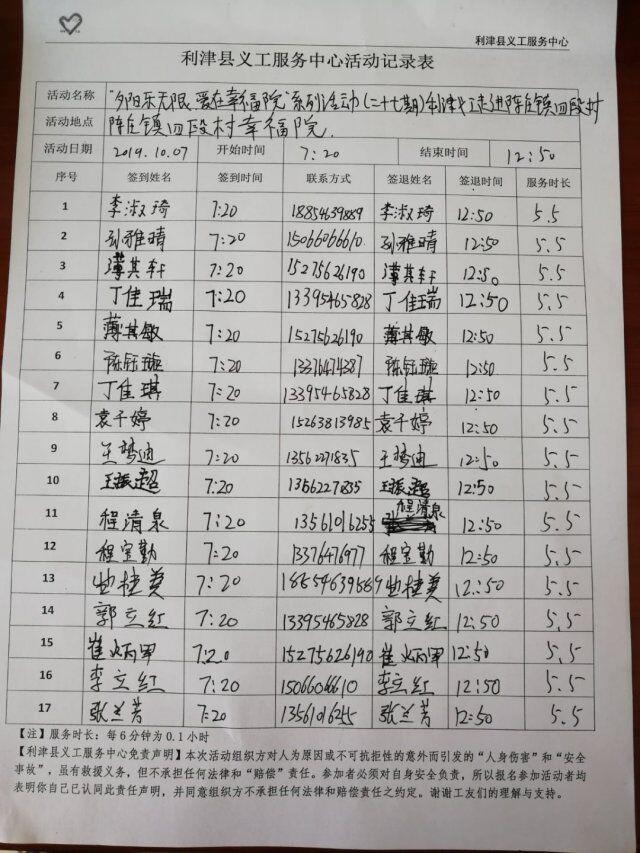 利津县义工服务中心
利津县义工服务中心活动记录表
活动名称 "夕阳乐无限 爱在幸福院"系列活动(二十七期)利津义工走进陈庄镇四段村
活动地点 陈庄镇四段村幸福院
活动日期 2019.10.07 开始时间 7:20 结束时间 12:50
序号 签到姓名 签到时间 联系方式 签退姓名 签退时间 服务时长
1 李淑琦 7:20 18854639889 李淑琦 12:50 5.5
2 孙雅晴 7:20 15066066610 孙雅晴 12:50 5.5
3 薄其轩 7:20 15275626190 薄其轩 12:50 5.5
4 丁佳瑞 7:20 13395465828 丁佳瑞 12:50 5.5
5 薄其敏 7:20 15275626190 薄其敏 12:50 5.5
6 陈钰璇 7:20 13376474387 陈钰璇 12:50 5.5
7 丁佳琪 7:20 13395465828 丁佳琪 12:50 5.5
8 袁千婷 7:20 15263813985 袁千婷 12:50 5.5
9 王梦迪 7:20 13562271835 王梦迪 12:50 5.5
10 王振超 7:20 13562271835 王振超 12:50 5.5
11 程清泉 7:20 13561016255 程清泉 12:50 5.5
12 程宝勤 7:20 13376476977 程宝勤 12:50 5.5
13 桂美 7:20 18854639889 桂美 12:50 5.5
14 郭立红 7:20 13395465828 郭立红 12:50 5.5
15 崔炳军 7:20 15275626190 崔炳军 12:50 5.5
16 李立红 7:20 15066066610 李立红 12:50 5.5
17 张兰芳 7:20 13561016255 张兰芳 12:50 5.5
【注】服务时长：每6分钟为0.1小时
【利津县义工服务中心免责声明】本次活动组织方对人为原因或不可抗拒性的意外而引发的“人身伤害”和“安全
事故”，虽有救援义务，但不承担任何法律和“赔偿”责任。参加者必须对自身安全负责，所以报名参加活动者均
表明你自己已认同此责任声明，并同意组织方不承担任何法律和赔偿责任之约定。谢谢工友们的理解与支持。